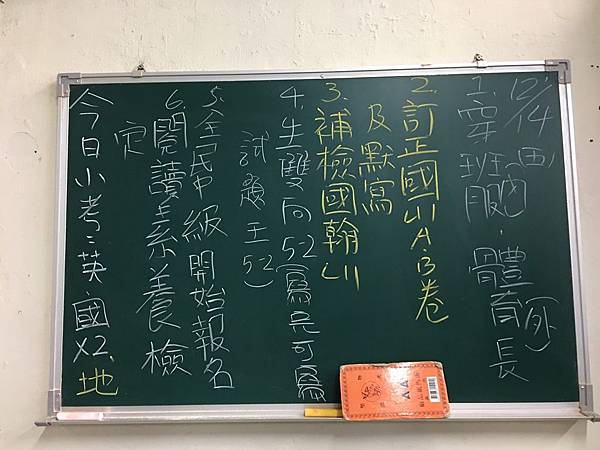 12/14 (四)
1. 穿班服(內), 體育長(外)
2. 訂正國L11 A.B卷
及默寫
3. 補檢國翰L11
4. 生雙向5-2(寫完可寫
試題王5-2)
5. 全民中級開始報名
6. 閱讀素養檢
定
今日小考:英國x2、地